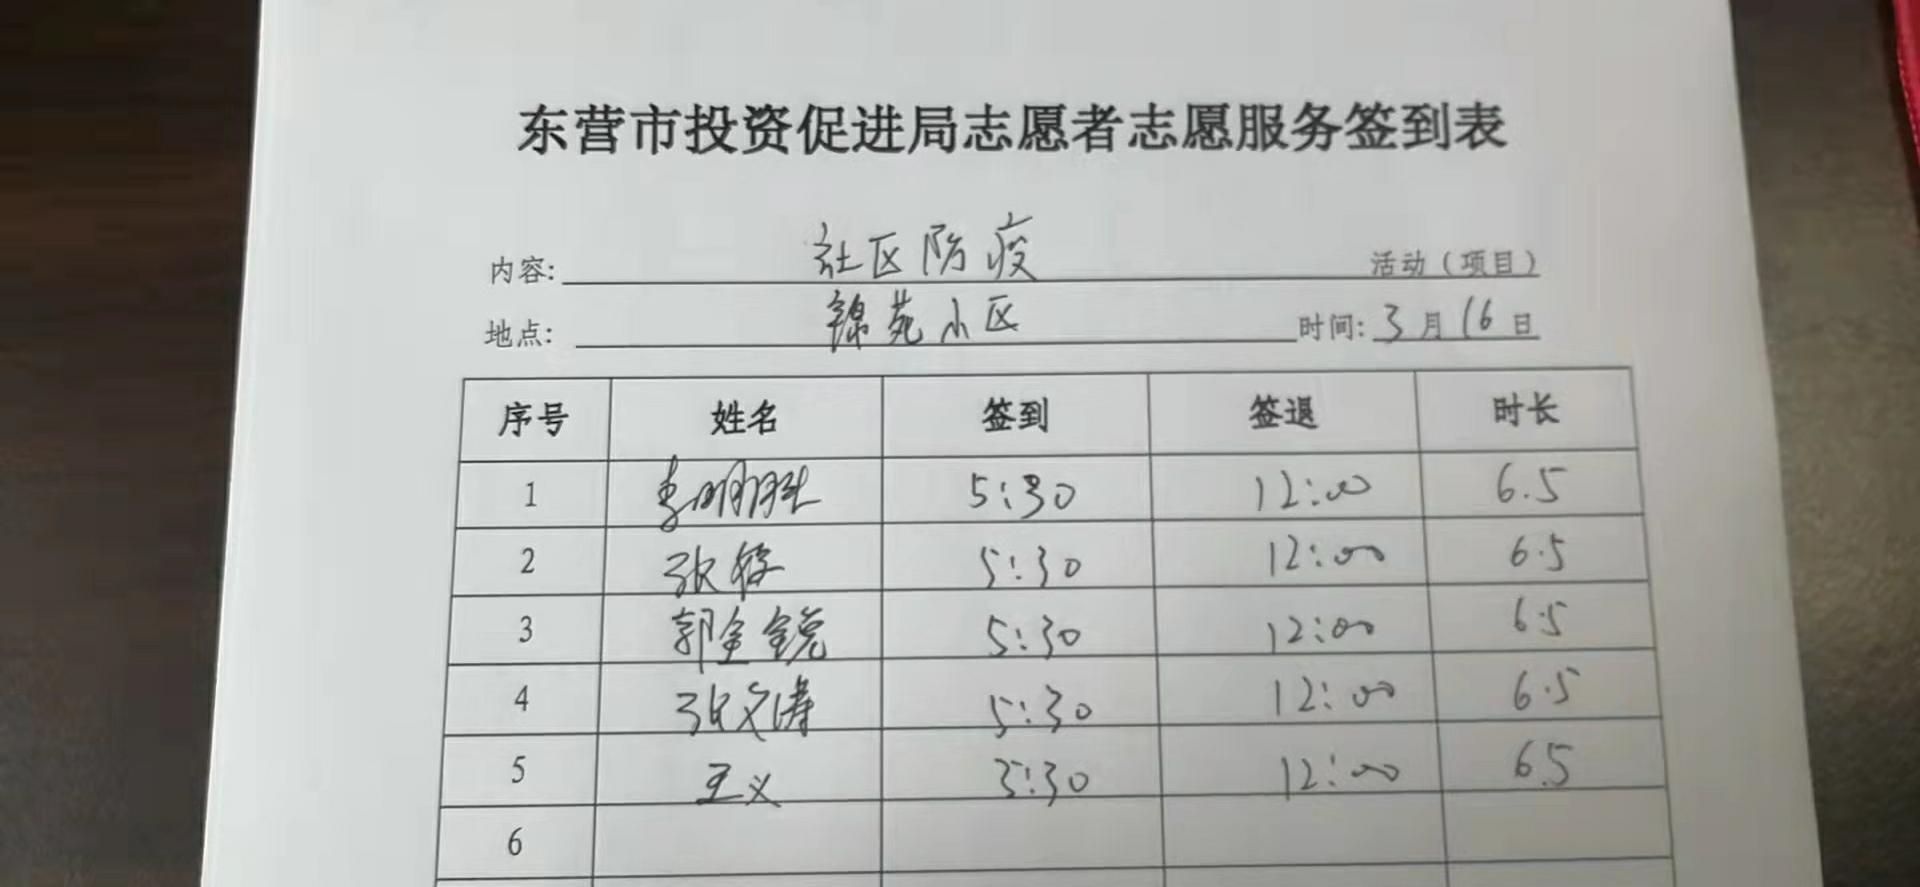 东营市投资促进局志愿者志愿服务签到表
内容: 社区防疫 活动（项目）
地点: 锦苑小区 时间: 3月16日
序号 姓名 签到 签退 时长
1 李明胜 5:30 12:00 6.5
2 张 5:30 12:00 6.5
3 郭金锐 5:30 12:00 6.5
4 张文涛 5:30 12:00 6.5
5 王义 5:30 12:00 6.5
6